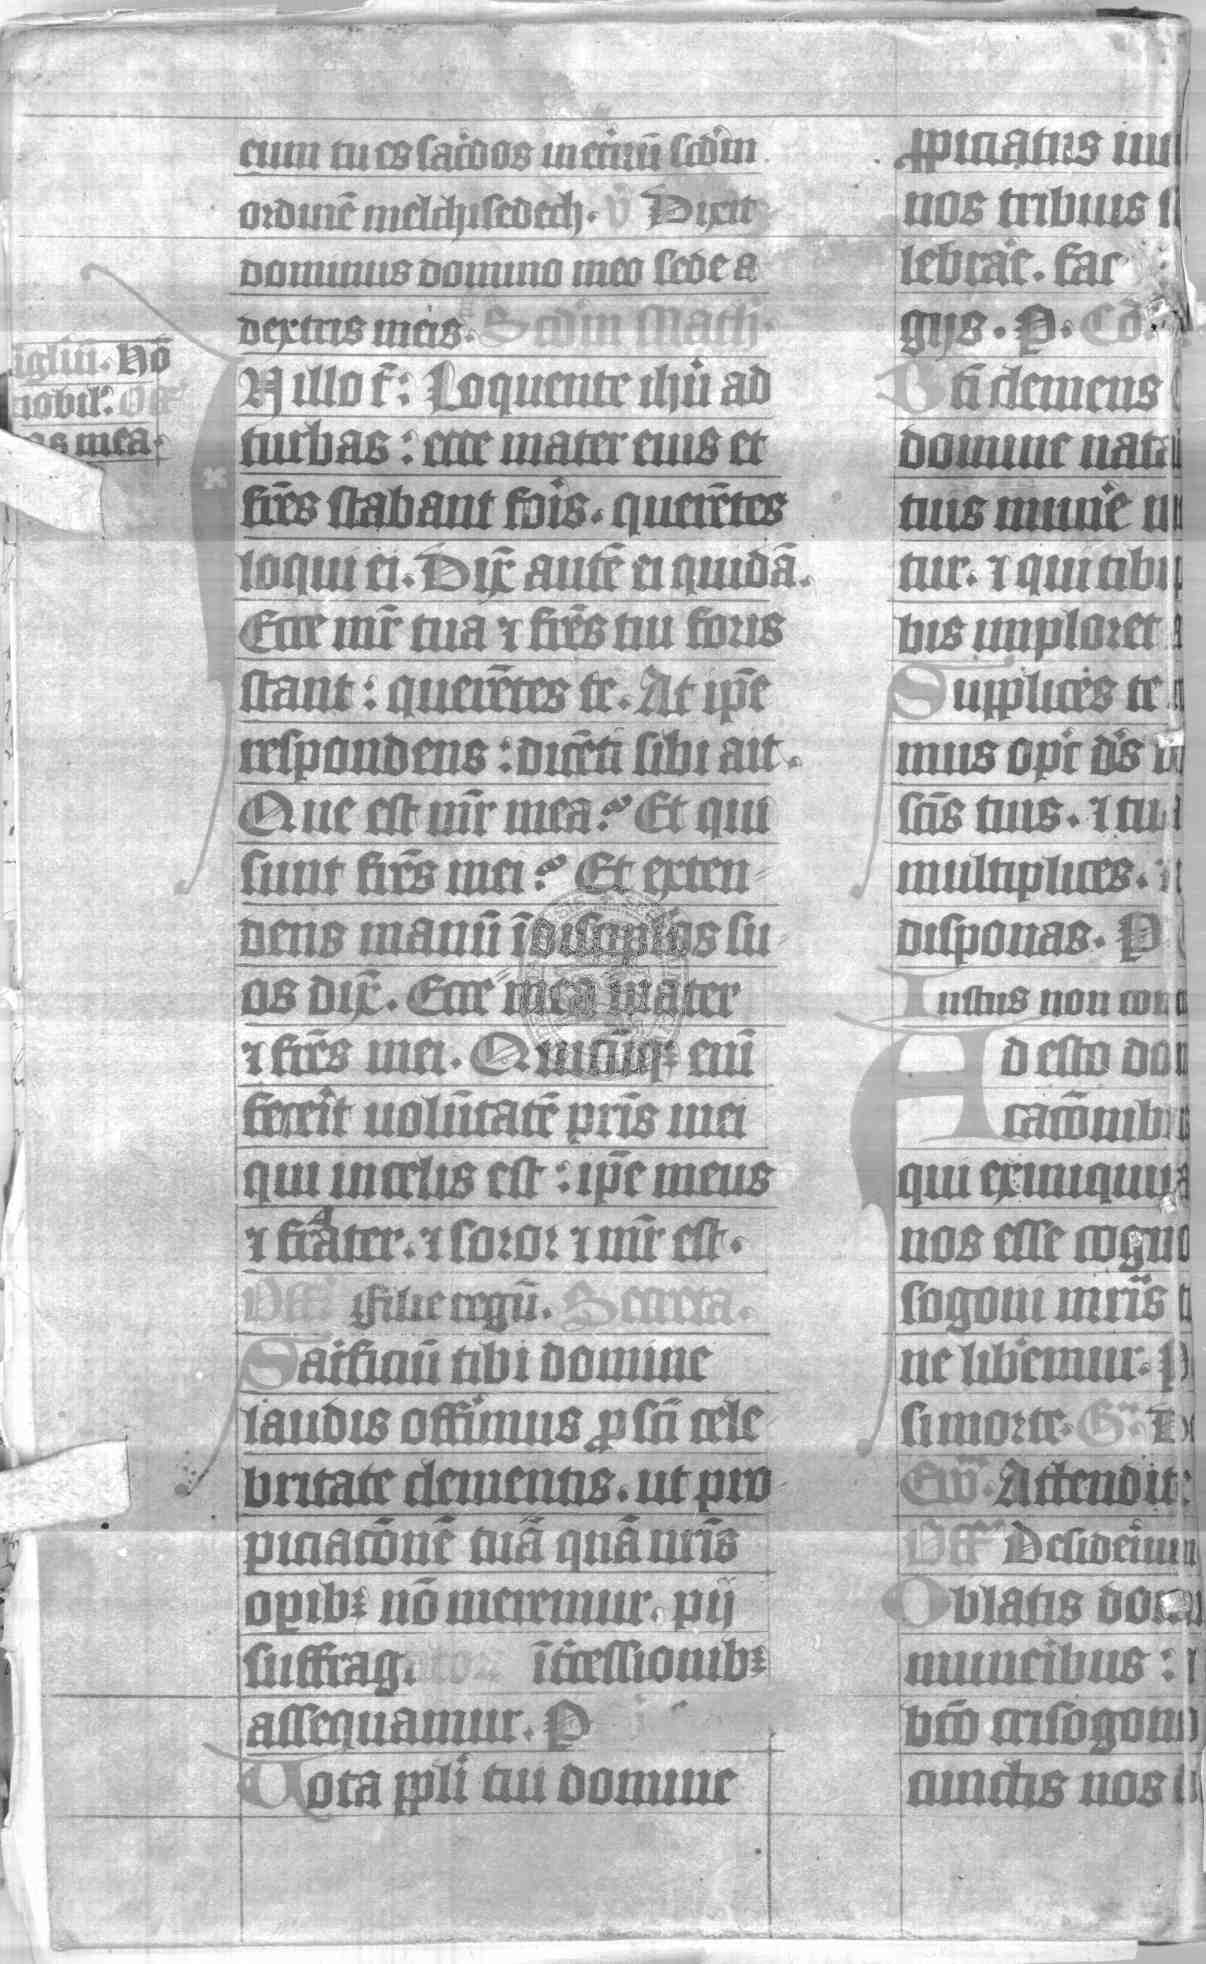 igliũ. Nõ
nobil'. Off'
as mea.
eum tu es sac̾dos in et̾nũ scd'm
ordinẽ melchisedech. v̾ Dixit
dominus domino meo sede a
dextris meis. Scd'm Math.
N illo t̃: Loquente ihũ ad
turbas : ecce mater eius et
fr̃es stabant fois. querẽtes
loqui ei. Dix̃ autẽ ei quidã.
Ecce mr̃ tua ⁊ fr̃es tui foris
stant : querẽtes te. At ip̃e
respondens : dicẽti sibi ait.
Que est mr̃ mea? Et qui
sunt fr̃es mei? Et exten
dens manũ ĩ discipulos su
os dix̃. Ecce mea mater
⁊ fr̃es mei. Quicũq; eni
fecerit uolũtatẽ pr̃is mei
qui in celis est : ip̃e meus
⁊ frater. ⁊ soror ⁊ mr̃ est.
Off' Filie regũ. Secreta.
Sac̾ficiũ tibi domine
laudis offerimus ꝓ sc̃i cele
britate clementis. ut pro
piciacõnẽ tuã quã nr̃is
opib; nõ meremur. pij
suffrag ĩt̾cessionib;
assequamur. P
Uota ppl'i tui domine
ꝓpiciatus
nos tribuis
lebrac̾. fac
gijs. P. Cõ.
Bt̃i clemens
domine nata
tuis mune
tur. ⁊ qui tibi
bis imploret
Supplices te
mus op̃c d's
sc̃is tuis. ⁊ tua
multiplices.
disponas. P
Iustus non con
Ad esto do
cacõnibus
qui ex iniquita
nos esse cogno
sogoni mr̃is
ne liberemur. P
si morte. Gr̃. D
Ew̃. Attendite
Off' Desideriũ
Oblatis do
muneribus :
bt̃o crisogono
cunctis nos